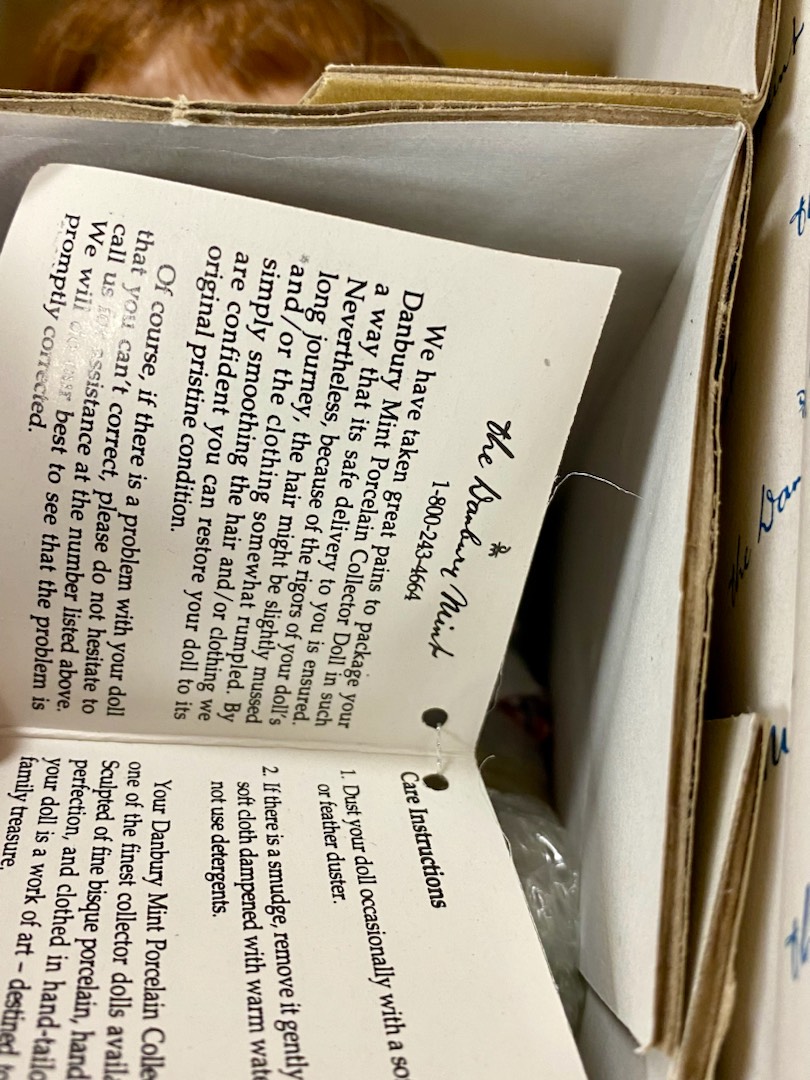 the Danbury Mint
1-800-243-4664
We have taken great pains to package your
Danbury Mint Porcelain Collector Doll in such
a way that its safe delivery to you is ensured.
Nevertheless, because of the rigors of your doll's
long journey, the hair might be slightly mussed
and/or the clothing somewhat rumpled. By
simply smoothing the hair and/or clothing we
are confident you can restore your doll to its
original pristine condition.
Of course, if there is a problem with your doll
that you can't correct, please do not hesitate to
call us for assistance at the number listed above.
We will do our best to see that the problem is
promptly corrected.
Care Instructions
1. Dust your doll occasionally with a so
or feather duster.
2. If there is a smudge, remove it gently
soft cloth dampened with warm wate
not use detergents.
Your Danbury Mint Porcelain Colle
one of the finest collector dolls availa
Sculpted of fine bisque porcelain, hand
perfection, and clothed in hand-tailo
your doll is a work of art – destined to
family treasure.
the Dan